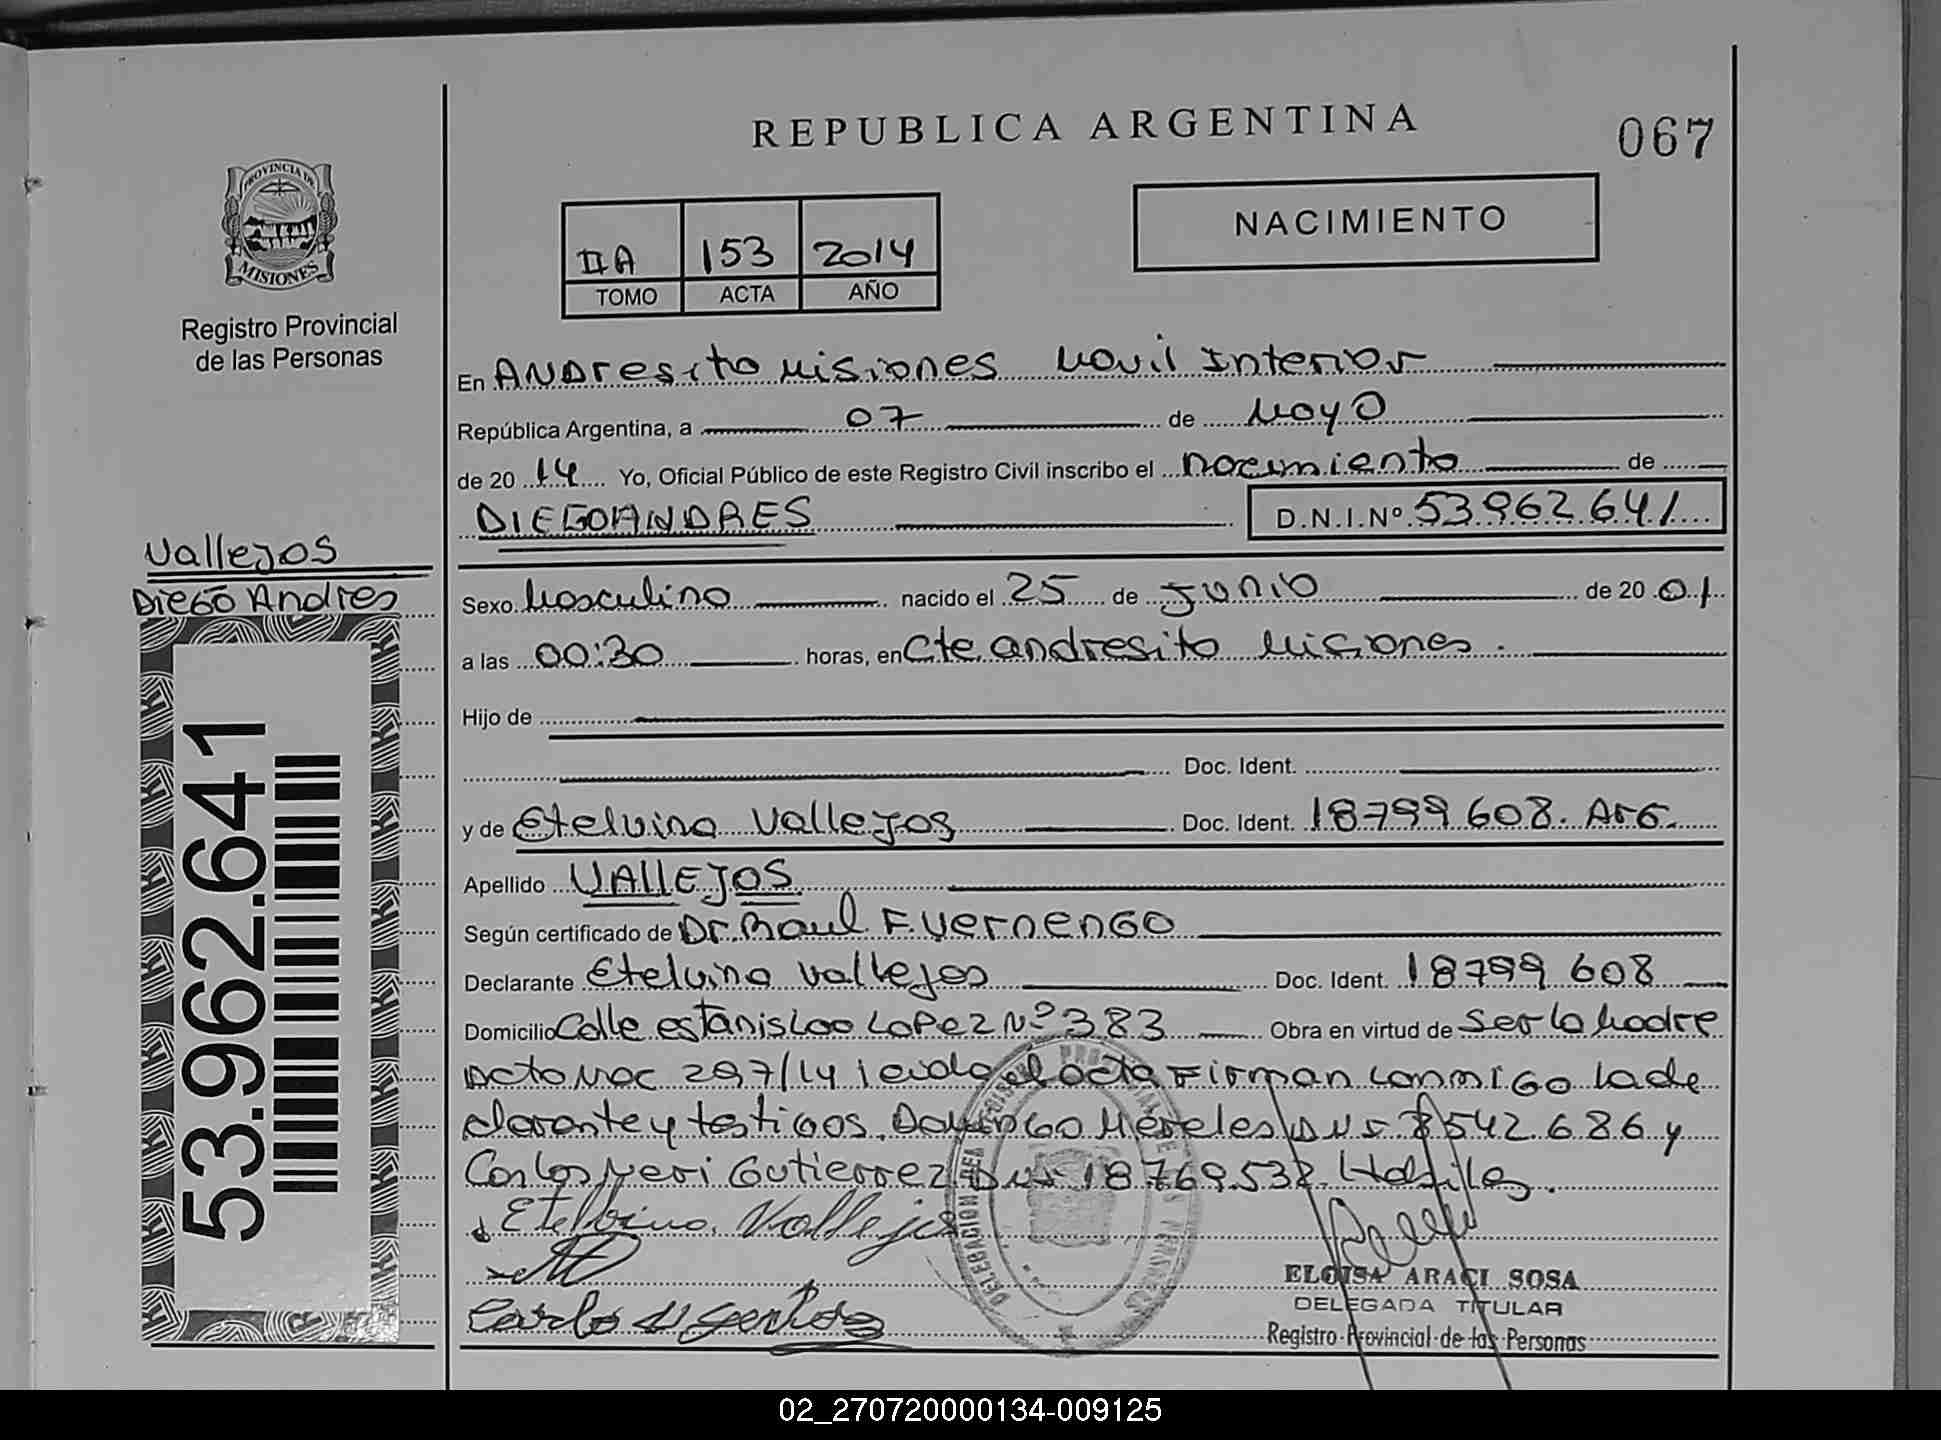 REPUBLICA ARGENTINA
067
PROVINCIA DE
MISIONES
Registro Provincial
de las Personas
NACIMIENTO
IIA 153 2014
TOMO ACTA AÑO
En ANDresito Misiones Movil Interior
República Argentina, a 07 de Mayo
de 20 14 Yo, Oficial Público de este Registro Civil inscribo el nacimiento de
DIEGO ANDRES D.N.I.Nº 53962641
Vallejos
Diego Andres
53.962.641
Sexo Masculino nacido el 25 de Junio de 20 01
a las 00:30 horas, en Cte andresito Misiones.
Hijo de
Doc. Ident.
y de Etelvina Vallejos Doc. Ident. 18799608. Arg.
Apellido VALLEJOS
Según certificado de Dr. Raul F. Vernengo
Declarante Etelvina Vallejos Doc. Ident. 18799 608
Domicilio Calle estanislao Lopez Nº 383 Obra en virtud de Ser la Madre
297/14 leida el acta Firman conmigo la de
clarante y testigos. Domingo Mereles 8542.686 y
Carlos Neri Gutierrez 18769.532. Habiles.
Etelbina Vallejo
ELOISA ARACI SOSA
DELEGADA TITULAR
Registro Provincial de las Personas
02_270720000134-009125